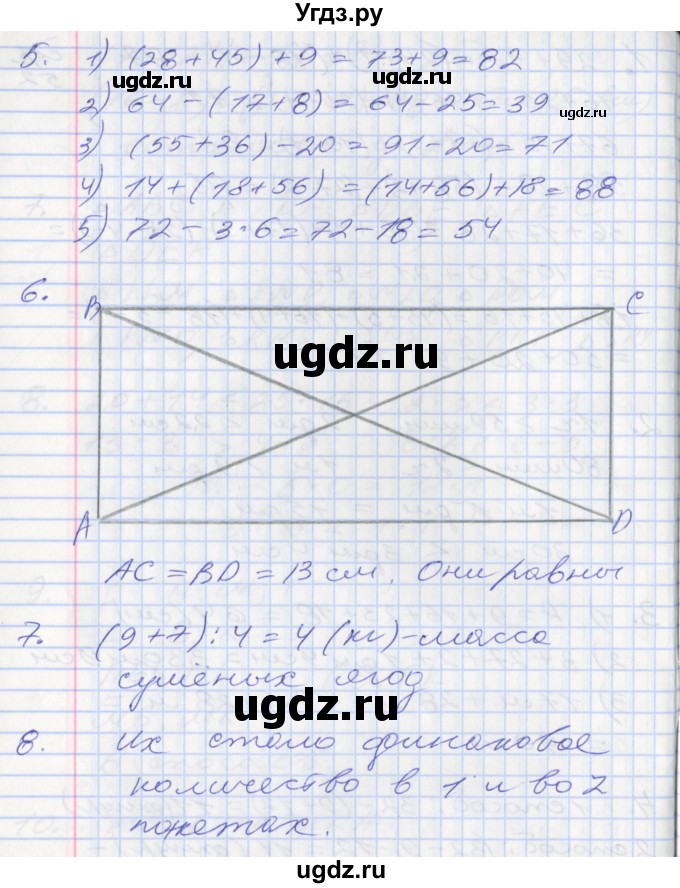 Угдз.ру
5. 1) (28+45)+9=73+9=82
2) 64-(17+8)=64-25=39
3) (55+36)-20=91-20=71
4) 14+(18+56)=(14+56)+18=88
5) 72-3·6=72-18=54
6.
B C
A D
AC=BD=13 см. Они равны
7. (9+7):4=4 (кг)-масса
сушёных ягод
8. Их стало одинаковое
количество в 1 и во 2
пакетах.
ugdz.ru
ugdz.ru
ugdz.ru
ugdz.ru
ugdz.ru
ugdz.ru